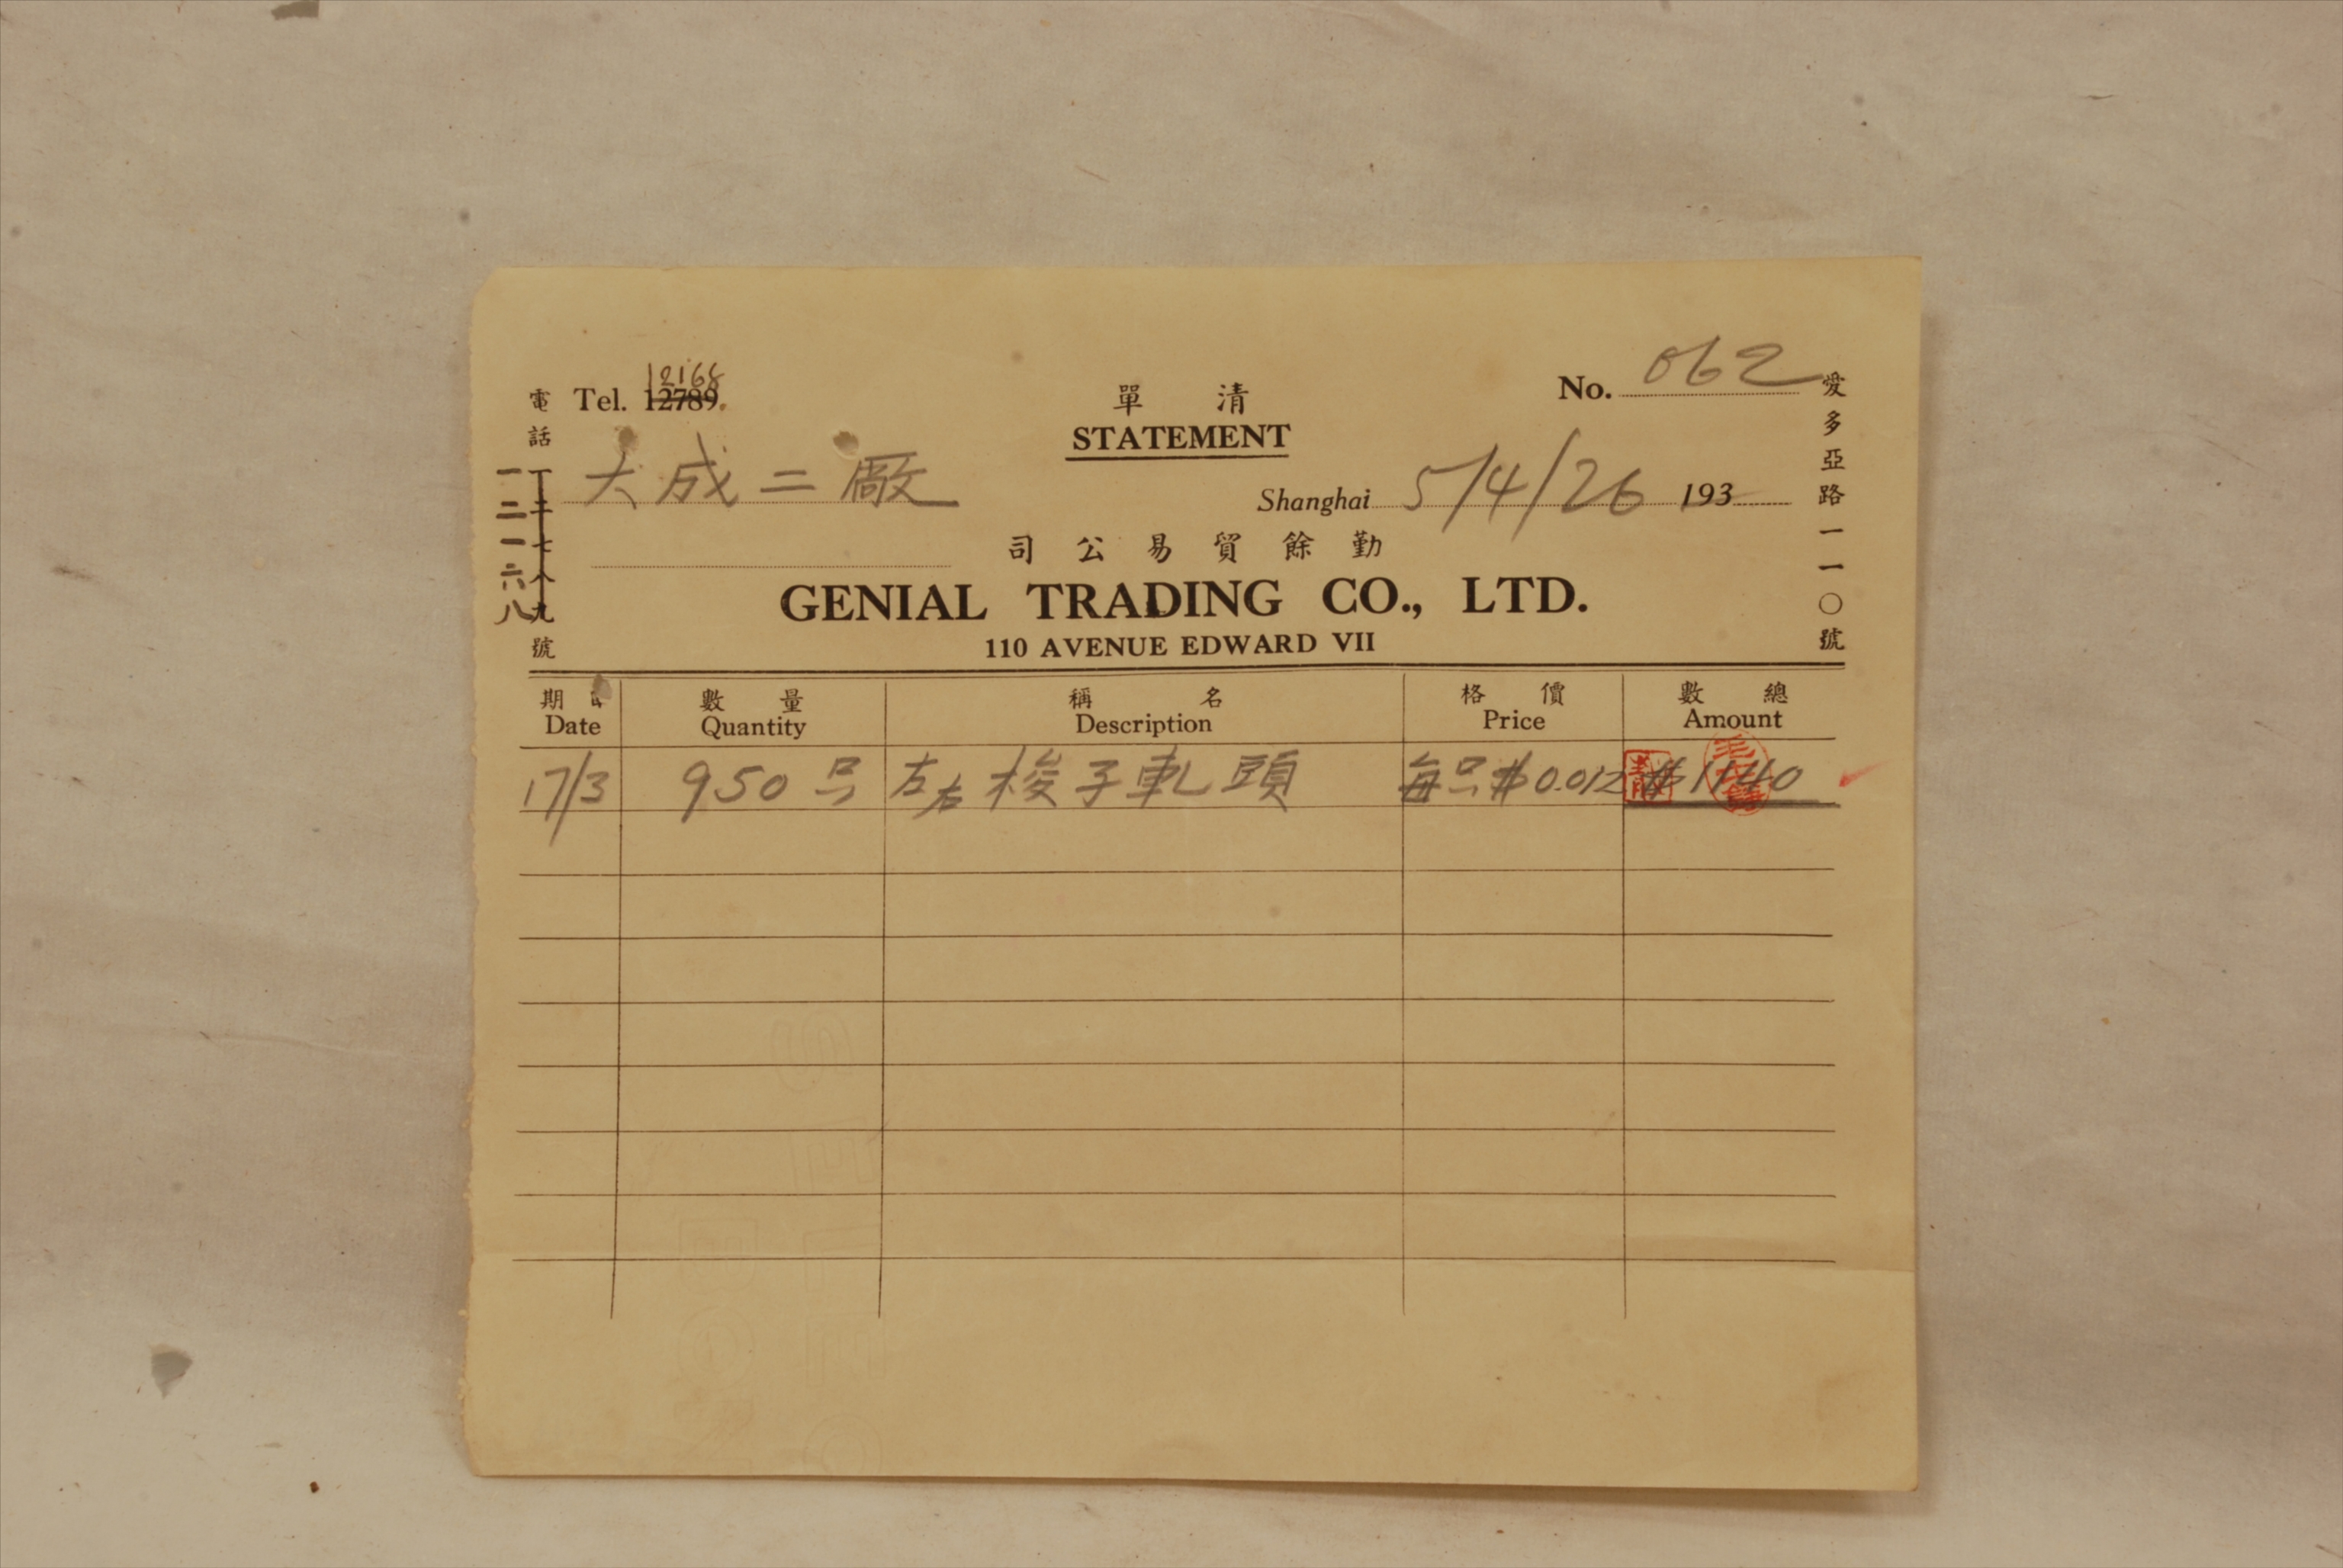 12168
電話 Tel. 12789.
一二七八九號
一二一六八
單 清
STATEMENT
No. 062
愛多亞路一一〇號
大成二廠
Shanghai 5/4/26 193
司公易貿餘勤
GENIAL TRADING CO., LTD.
110 AVENUE EDWARD VII
期日 數量 稱名 格價 數總
Date Quantity Description Price Amount
17/3 950只 左右梭子軋頭 每只$0.012 $1140